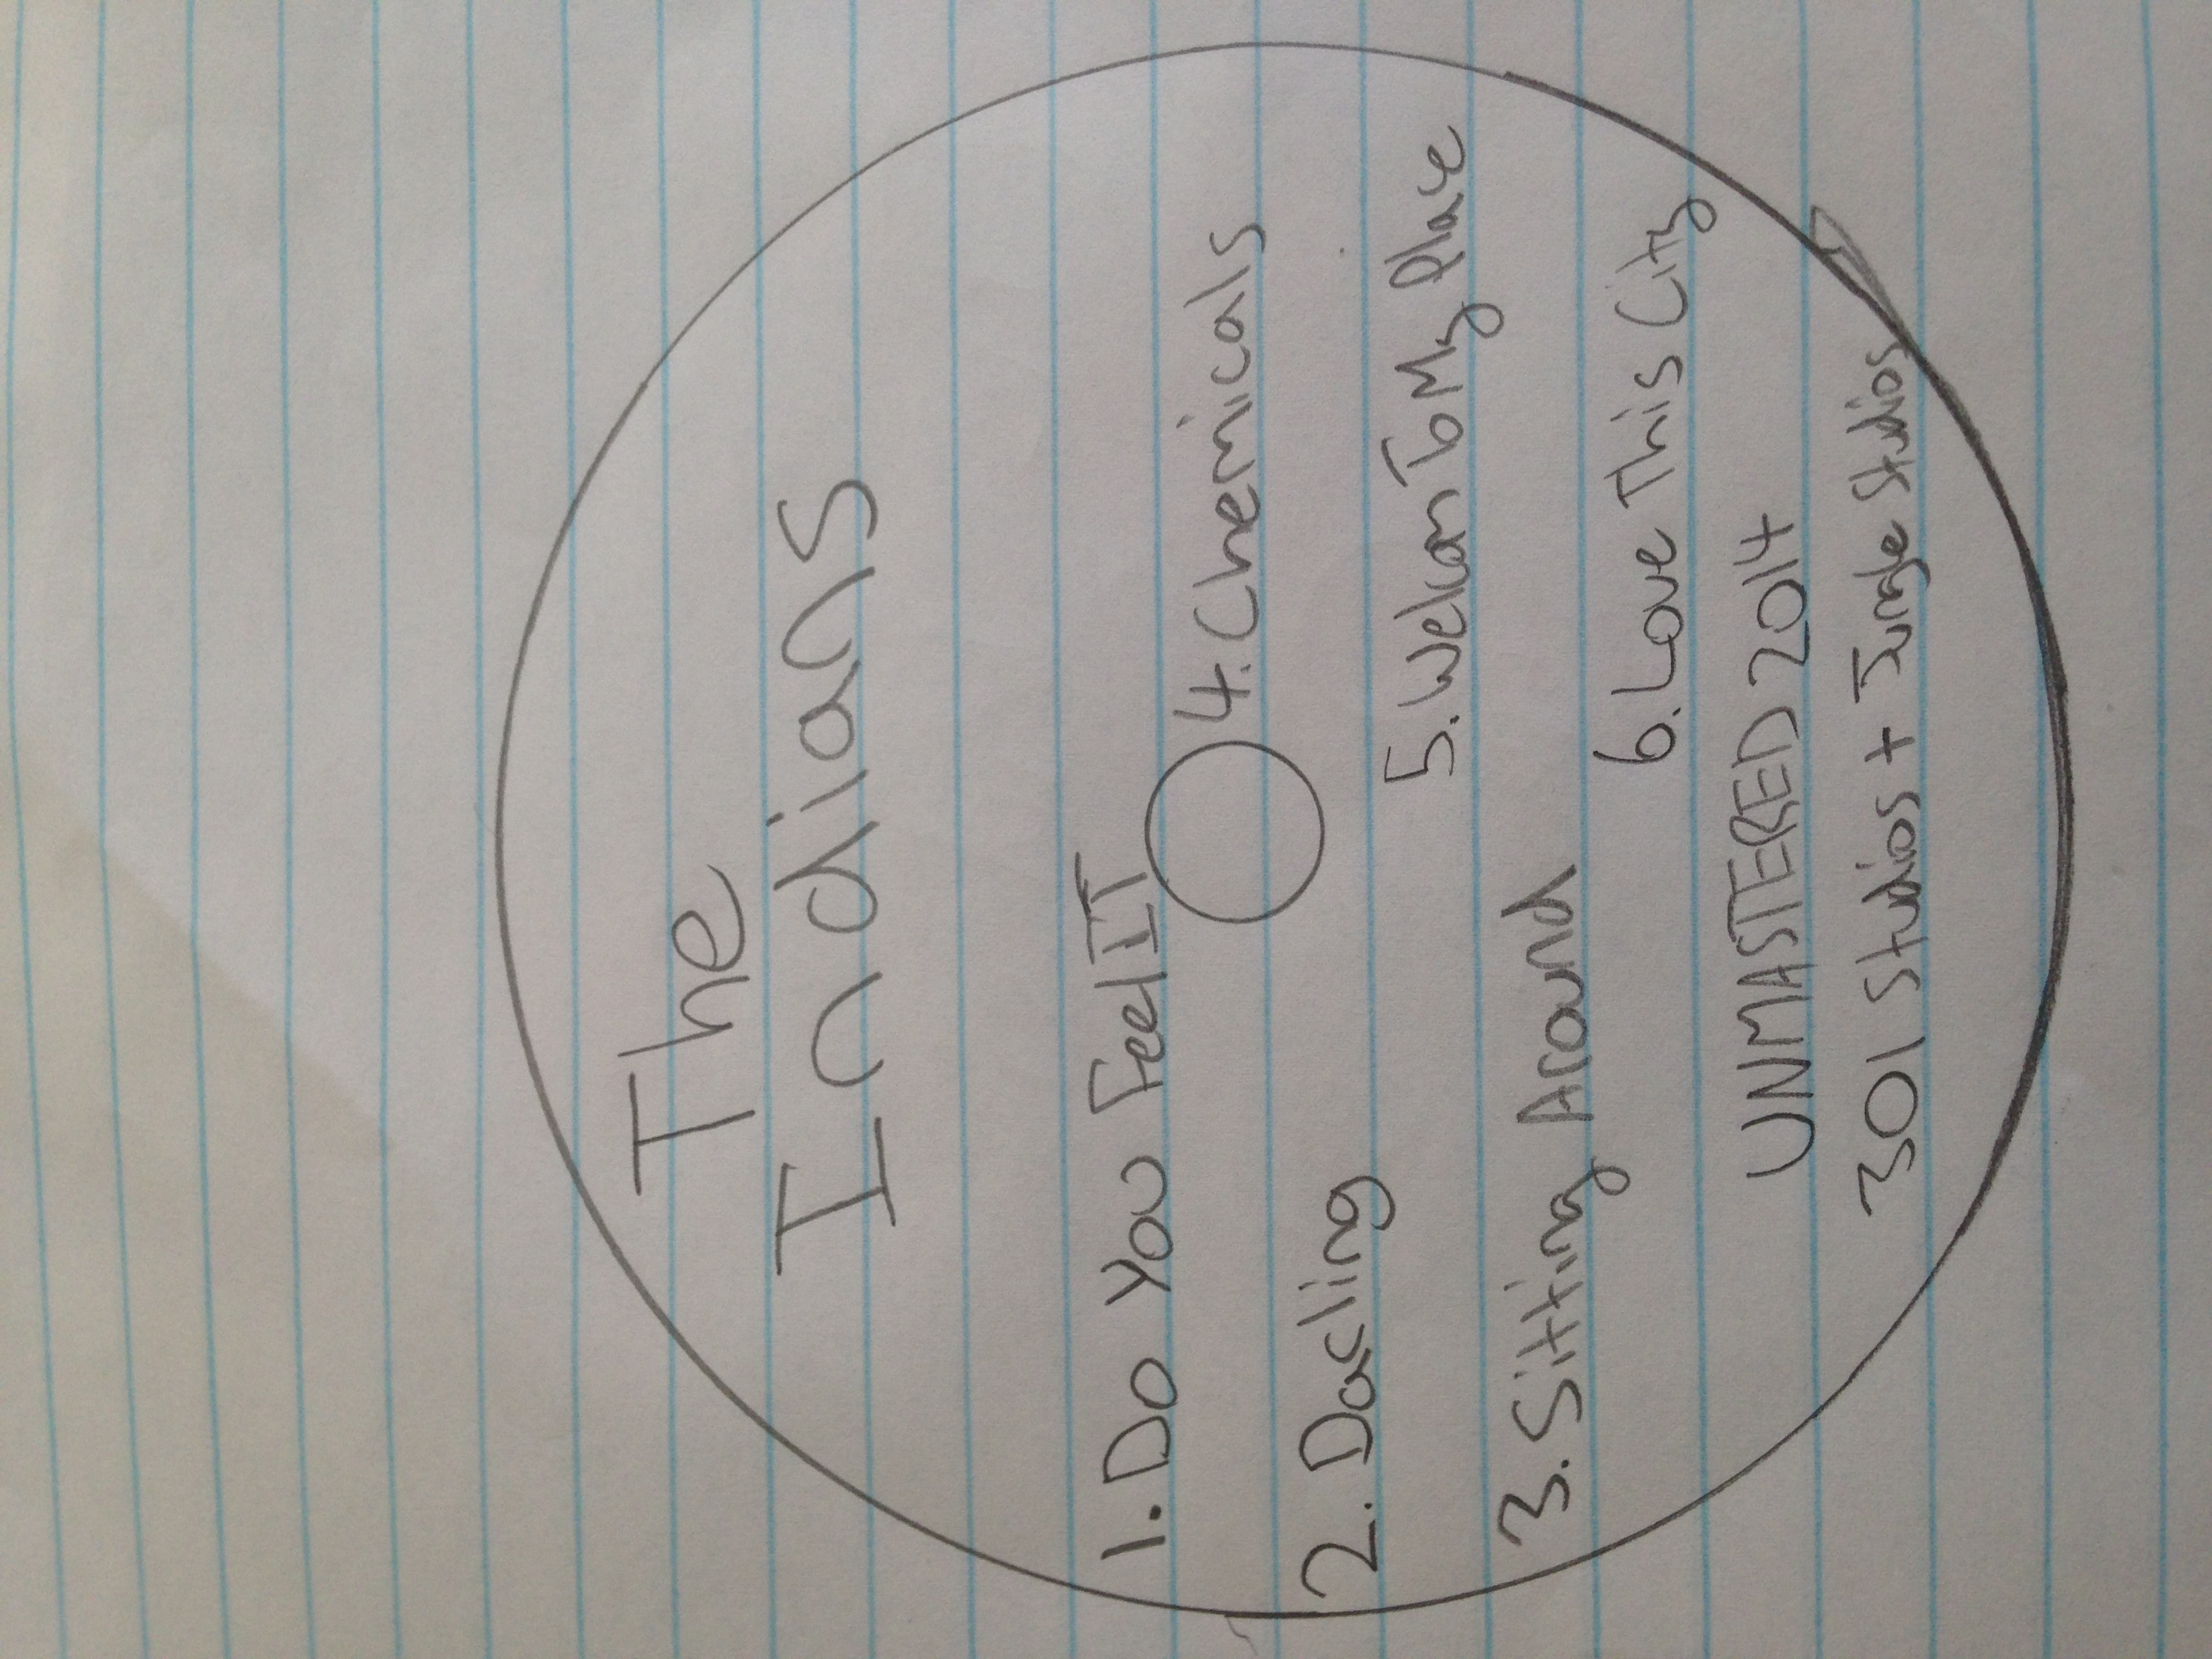 The
Indians
1. Do You Feel IT
2. Darling
3. Sitting Around
4. Chemicals
5. Welcom To My Place
6. Love This City
UNMASTERED 2014
301 Studios + Jungle Studios